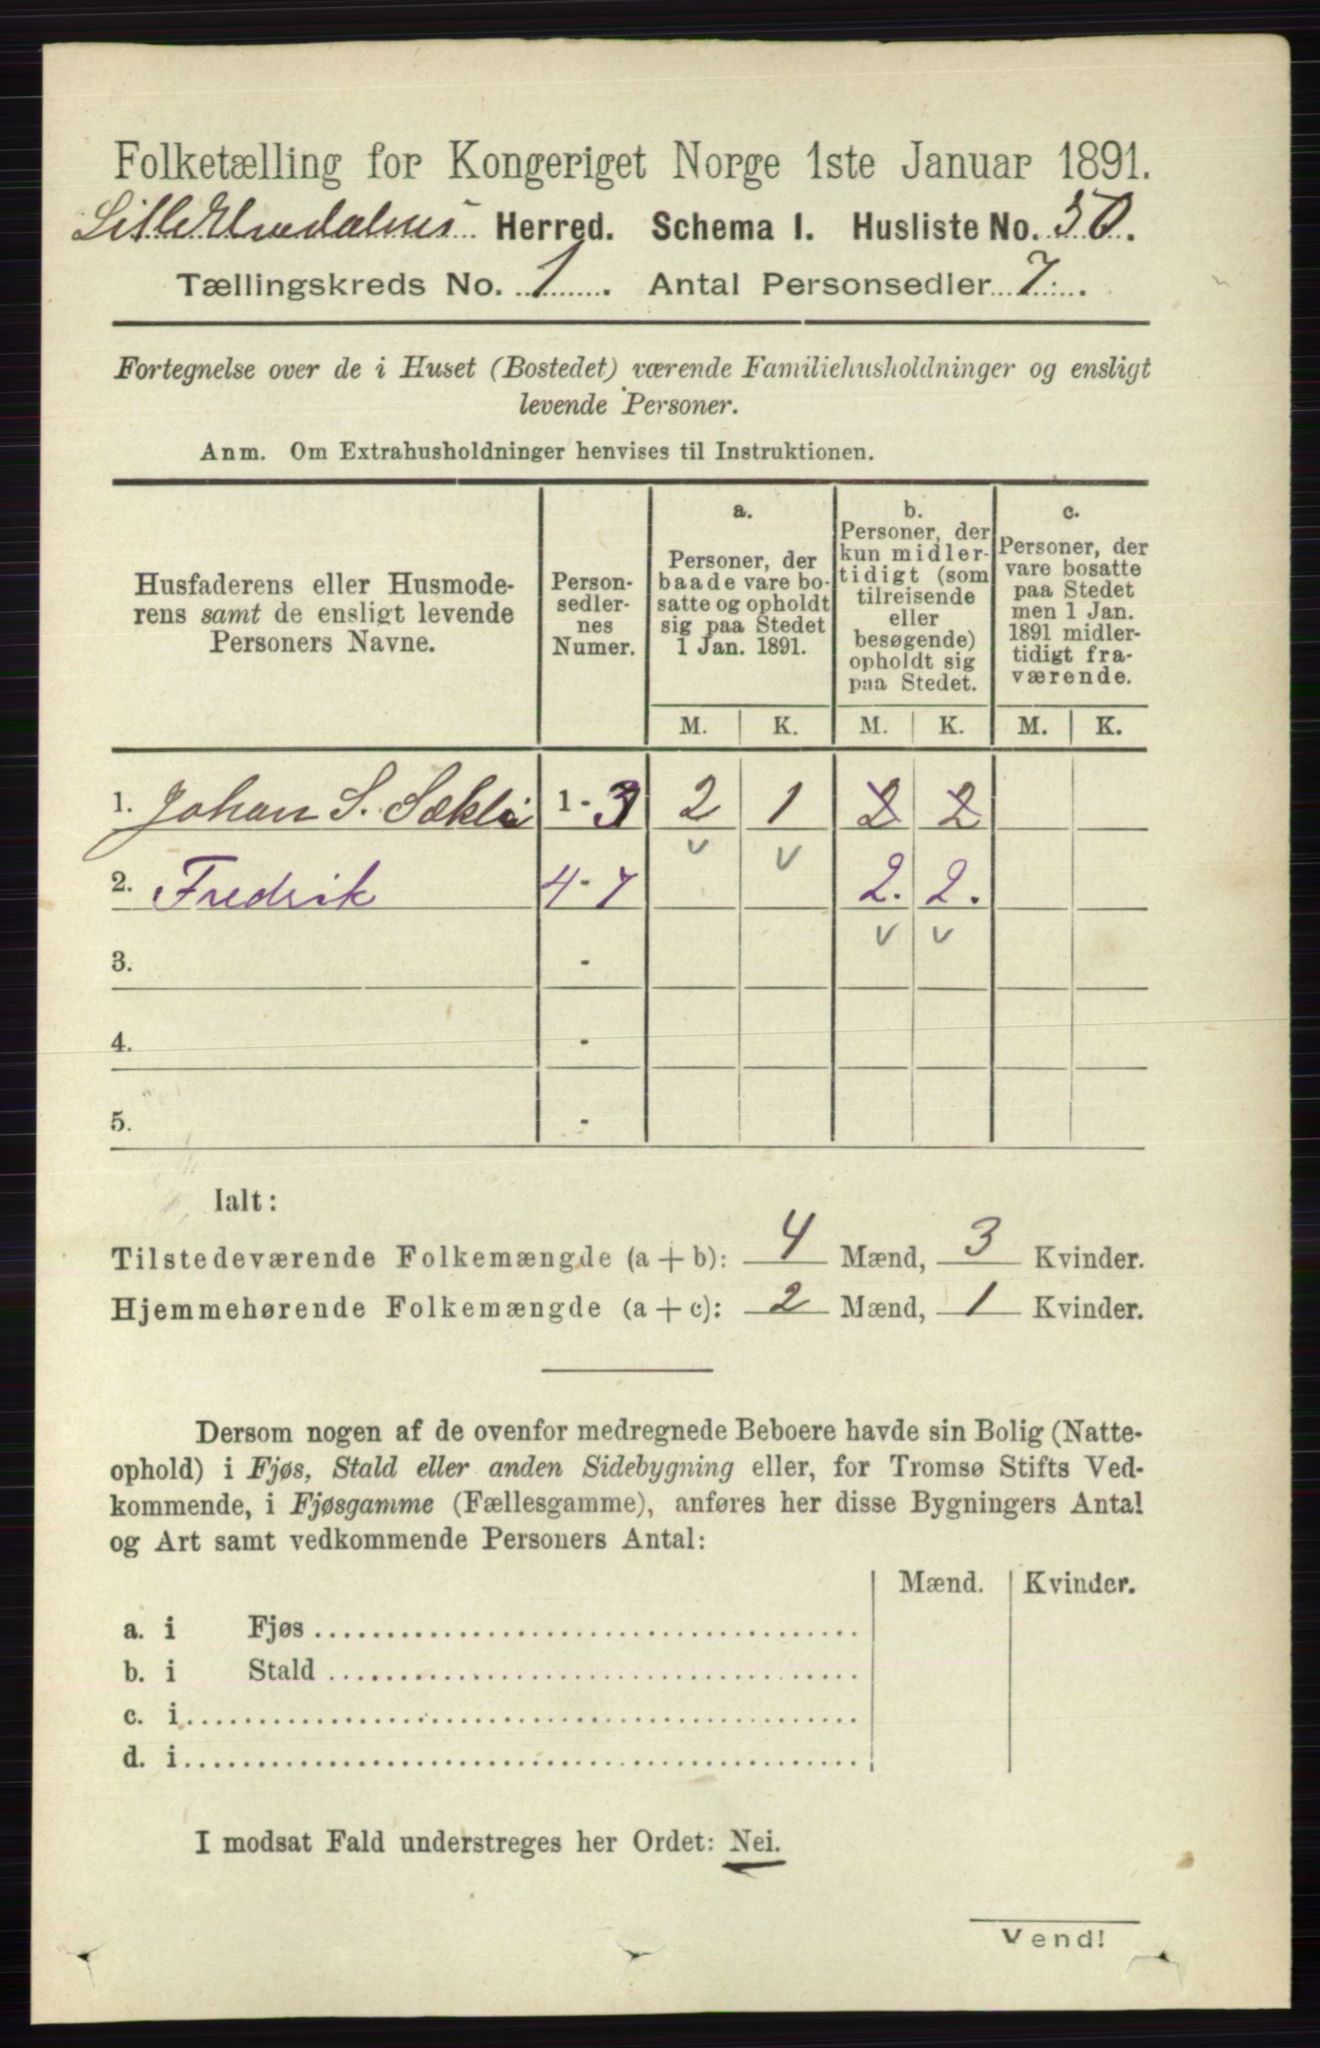 Folketælling for Kongeriget Norge 1ste Januar 1891.
Lille Elvedalens Herred. Schema I. Husliste No. 50.
Tællingskreds No. 1. Antal Personsedler 7.
Fortegnelse over de i Huset (Bostedet) værende Familiehusholdninger og ensligt
levende Personer.
Anm. Om Extrahusholdninger henvises til Instruktionen.
Husfaderens eller Husmode-
rens samt de ensligt levende
Personers Navne.
Person-
sedler-
nes
Numer.
a.
Personer, der
baade vare bo-
satte og opholdt
sig paa Stedet
1 Jan. 1891.
b.
Personer, der
kun midler-
tidigt (som
tilreisende
eller
besøgende)
opholdt sig
paa Stedet.
c.
Personer, der
vare bosatte
paa Stedet
men 1 Jan.
1891 midler-
tidigt fra-
værende.
M. K. M. K. M. K.
1. Johan S. 1 - 3 2 1 2 2
v v
2. Fredrik 4-7 2. 2.
v v
3. -
4. -
5. -
Ialt:
Tilstedeværende Folkemængde (a + b): 4 Mænd, 3 Kvinder.
Hjemmehørende Folkemængde (a + c): 2 Mænd, 1 Kvinder.
Dersom nogen af de ovenfor medregnede Beboere havde sin Bolig (Natte-
ophold) i Fjøs, Stald eller anden Sidebygning eller, for Tromsø Stifts Ved-
kommende, i Fjøsgamme (Fællesgamme), anføres her disse Bygningers Antal
og Art samt vedkommende Personers Antal:
Mænd. Kvinder.
a. i Fjøs
b. i Stald
c. i
d. i
I modsat Fald understreges her Ordet: Nei.
Vend!